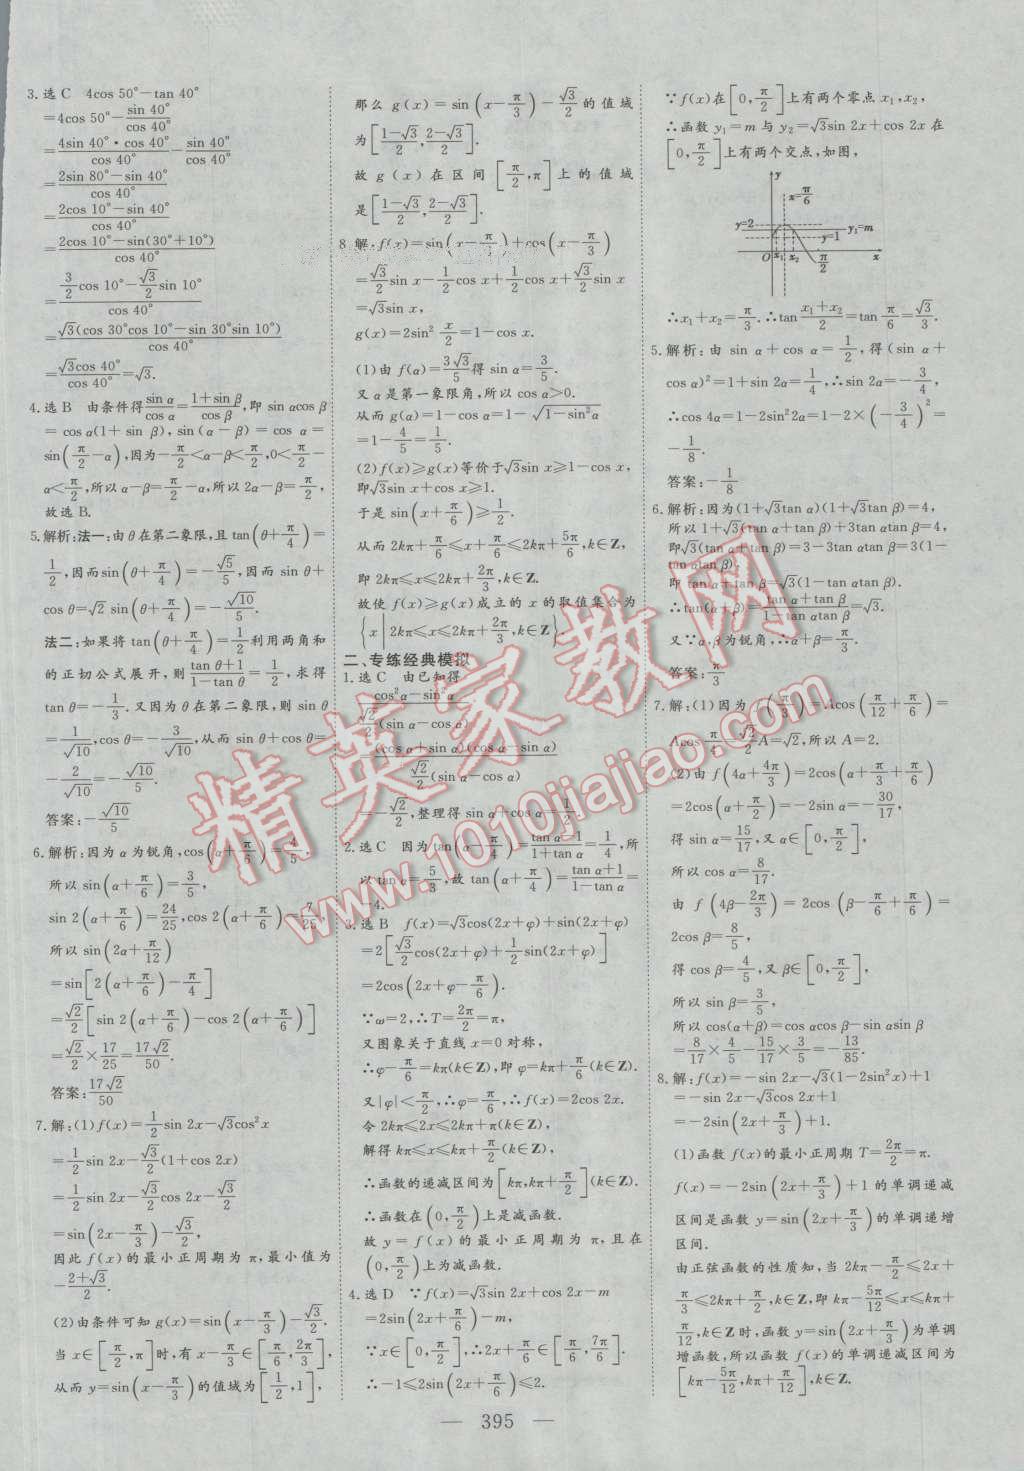 3.选C 4cos 50°-tan 40°
=4cos 50°-sin 40°/cos 40°
=4sin 40°·cos 40°/cos 40°-sin 40°/cos 40°
=(2sin 80°-sin 40°)/cos 40°
=(2cos 10°-sin 40°)/cos 40°
=(2cos 10°-sin(30°+10°))/cos 40°
=(3/2 cos 10°-√3/2 sin 10°)/cos 40°
=√3(cos 30°cos 10°-sin 30°sin 10°)/cos 40°
=√3cos 40°/cos 40°=√3.
4.选B 由条件得sin α/cos α=(1+sin β)/cos β,即 sin αcos β
=cos α(1+sin β),sin(α-β)=cos α=
sin(π/2-α),因为-π/2<α-β<π/2,0<π/2-
α<π/2,所以 α-β=π/2-α,所以 2α-β=π/2,
故选B.
5.解析:法一:由θ在第二象限,且tan(θ+π/4)=
1/2,因而sin(θ+π/4)=-√5/5,因而sin θ+
cos θ=√2 sin(θ+π/4)=-√10/5.
法二:如果将tan(θ+π/4)=1/2利用两角和
的正切公式展开,则(tan θ+1)/(1-tan θ)=1/2,求得
tan θ=-1/3.又因为θ在第二象限,则sin θ
=1/√10,cos θ=-3/√10,从而sin θ+cos θ=
-2/√10=-√10/5.
答案:-√10/5
6.解析:因为α为锐角,cos(α+π/6)=4/5,
所以 sin(α+π/6)=3/5,
sin 2(α+π/6)=24/25,cos 2(α+π/6)=7/25,
所以 sin(2α+π/12)
=sin[2(α+π/6)-π/4]
=√2/2[sin 2(α+π/6)-cos 2(α+π/6)]
=√2/2×17/25=17√2/50.
答案:17√2/50
7.解:(1)f(x)=1/2 sin 2x-√3cos²x
=1/2 sin 2x-√3/2(1+cos 2x)
=1/2 sin 2x-√3/2 cos 2x-√3/2
=sin(2x-π/3)-√3/2,
因此f(x)的最小正周期为π,最小值为
-(2+√3)/2.
(2)由条件可知g(x)=sin(x-π/3)-√3/2.
当x∈[π/2,π]时,有x-π/3∈[π/6,2π/3],
从而y=sin(x-π/3)的值域为[1/2,1],
那么g(x)=sin(x-π/3)-√3/2的值域
为[(1-√3)/2,(2-√3)/2].
故g(x)在区间[π/2,π]上的值域
是[(1-√3)/2,(2-√3)/2].
8.解:f(x)=sin(x-π/6)+cos(x-π/3)
=√3/2 sin x-1/2 cos x+1/2 cos x+√3/2 sin x
=√3sin x,
g(x)=2sin² x/2=1-cos x.
(1)由f(α)=3√3/5得sin α=3/5.
又α是第一象限角,所以cos α>0.
从而g(α)=1-cos α=1-√(1-sin²α)
=1-4/5=1/5.
(2)f(x)≥g(x)等价于√3sin x≥1-cos x,
即√3sin x+cos x≥1.
于是sin(x+π/6)≥1/2.
从而2kπ+π/6≤x+π/6≤2kπ+5π/6,k∈Z,
即2kπ≤x≤2kπ+2π/3,k∈Z.
故使f(x)≥g(x)成立的x的取值集合为
{x|2kπ≤x≤2kπ+2π/3,k∈Z}.
二、专练经典模拟
1.选C 由已知得
(cos²α-sin²α)/(√2/2(sin α-cos α))
=(cos α+sin α)(cos α-sin α)/(√2/2(sin α-cos α))
=-√2/2,整理得sin α+cos α=1/2.
2.选C 因为tan(α-π/4)=(tan α-1)/(1+tan α)=1/4,所
以tan α=5/3,故tan(α+π/4)=(tan α+1)/(1-tan α)=
-4.
3.选B f(x)=√3cos(2x+φ)+sin(2x+φ)
=2[√3/2 cos(2x+φ)+1/2 sin(2x+φ)]
=2cos(2x+φ-π/6),
∵ω=2,∴T=2π/2=π,
又图象关于直线x=0对称,
∴φ-π/6=kπ(k∈Z),即φ=kπ+π/6(k∈Z),
又|φ|<π/2,∴φ=π/6,∴f(x)=2cos 2x.
令2kπ≤2x≤2kπ+π(k∈Z),
解得kπ≤x≤kπ+π/2(k∈Z),
∴函数的递减区间为[kπ,kπ+π/2](k∈Z).
∴函数在(0,π/2)上是减函数.
故y=f(x)的最小正周期为π,且在
(0,π/2)上为减函数.
4.选D ∵f(x)=√3sin 2x+cos 2x-m
=2sin(2x+π/6)-m,
∵x∈[0,π/2],∴2x+π/6∈[π/6,7π/6],
∴-1≤2sin(2x+π/6)≤2.
∵f(x)在[0,π/2]上有两个零点x₁,x₂,
∴函数y₁=m与y₂=√3sin 2x+cos 2x在
[0,π/2]上有两个交点,如图,
y
x=π/6
y=2
y₁=m
y=1
O x₁ x₂ π/2 x
∴x₁+x₂=π/3.∴tan (x₁+x₂)/2=tan π/6=√3/3.
5.解析:由sin α+cos α=1/2,得(sin α+
cos α)²=1+sin 2α=1/4,∴sin 2α=-3/4,
∴cos 4α=1-2sin²2α=1-2×(-3/4)²=
-1/8.
答案:-1/8
6.解析:因为(1+√3tan α)(1+√3tan β)=4,
所以1+√3(tan α+tan β)+3tan αtan β=4,
即√3(tan α+tan β)=3-3tan αtan β=3(1-
tan αtan β),
即tan α+tan β=√3(1-tan αtan β).
∴tan(α+β)=(tan α+tan β)/(1-tan αtan β)=√3.
又∵α,β为锐角,∴α+β=π/3.
答案:π/3
7.解:(1)因为f(π/3)=Acos(π/12+π/6)=
Acos π/4=√2/2 A=√2,所以A=2.
(2)由f(4α+4π/3)=2cos(α+π/3+π/6)
=2cos(α+π/2)=-2sin α=-30/17,
得sin α=15/17,又α∈[0,π/2],
所以cos α=8/17.
由f(4β-2π/3)=2cos(β-π/6+π/6)=
2cos β=8/5,
得cos β=4/5,又β∈[0,π/2],
所以sin β=3/5,
所以cos(α+β)=cos αcos β-sin αsin β
=8/17×4/5-15/17×3/5=-13/85.
8.解:f(x)=-sin 2x-√3(1-2sin²x)+1
=-sin 2x-√3cos 2x+1
=-2sin(2x+π/3)+1.
(1)函数f(x)的最小正周期T=2π/2=π.
f(x)=-2sin(2x+π/3)+1的单调递减
区间是函数y=sin(2x+π/3)的单调递增
区间.
由正弦函数的性质知,当2kπ-π/2≤2x+
π/3≤2kπ+π/2,k∈Z,即kπ-5π/12≤x≤kπ+
π/12,k∈Z时,函数y=sin(2x+π/3)为单调
增函数,所以函数f(x)的单调递减区间为
[kπ-5π/12,kπ+π/12],k∈Z.
— 395 —
精英家教网
www.1010jiajiao.com